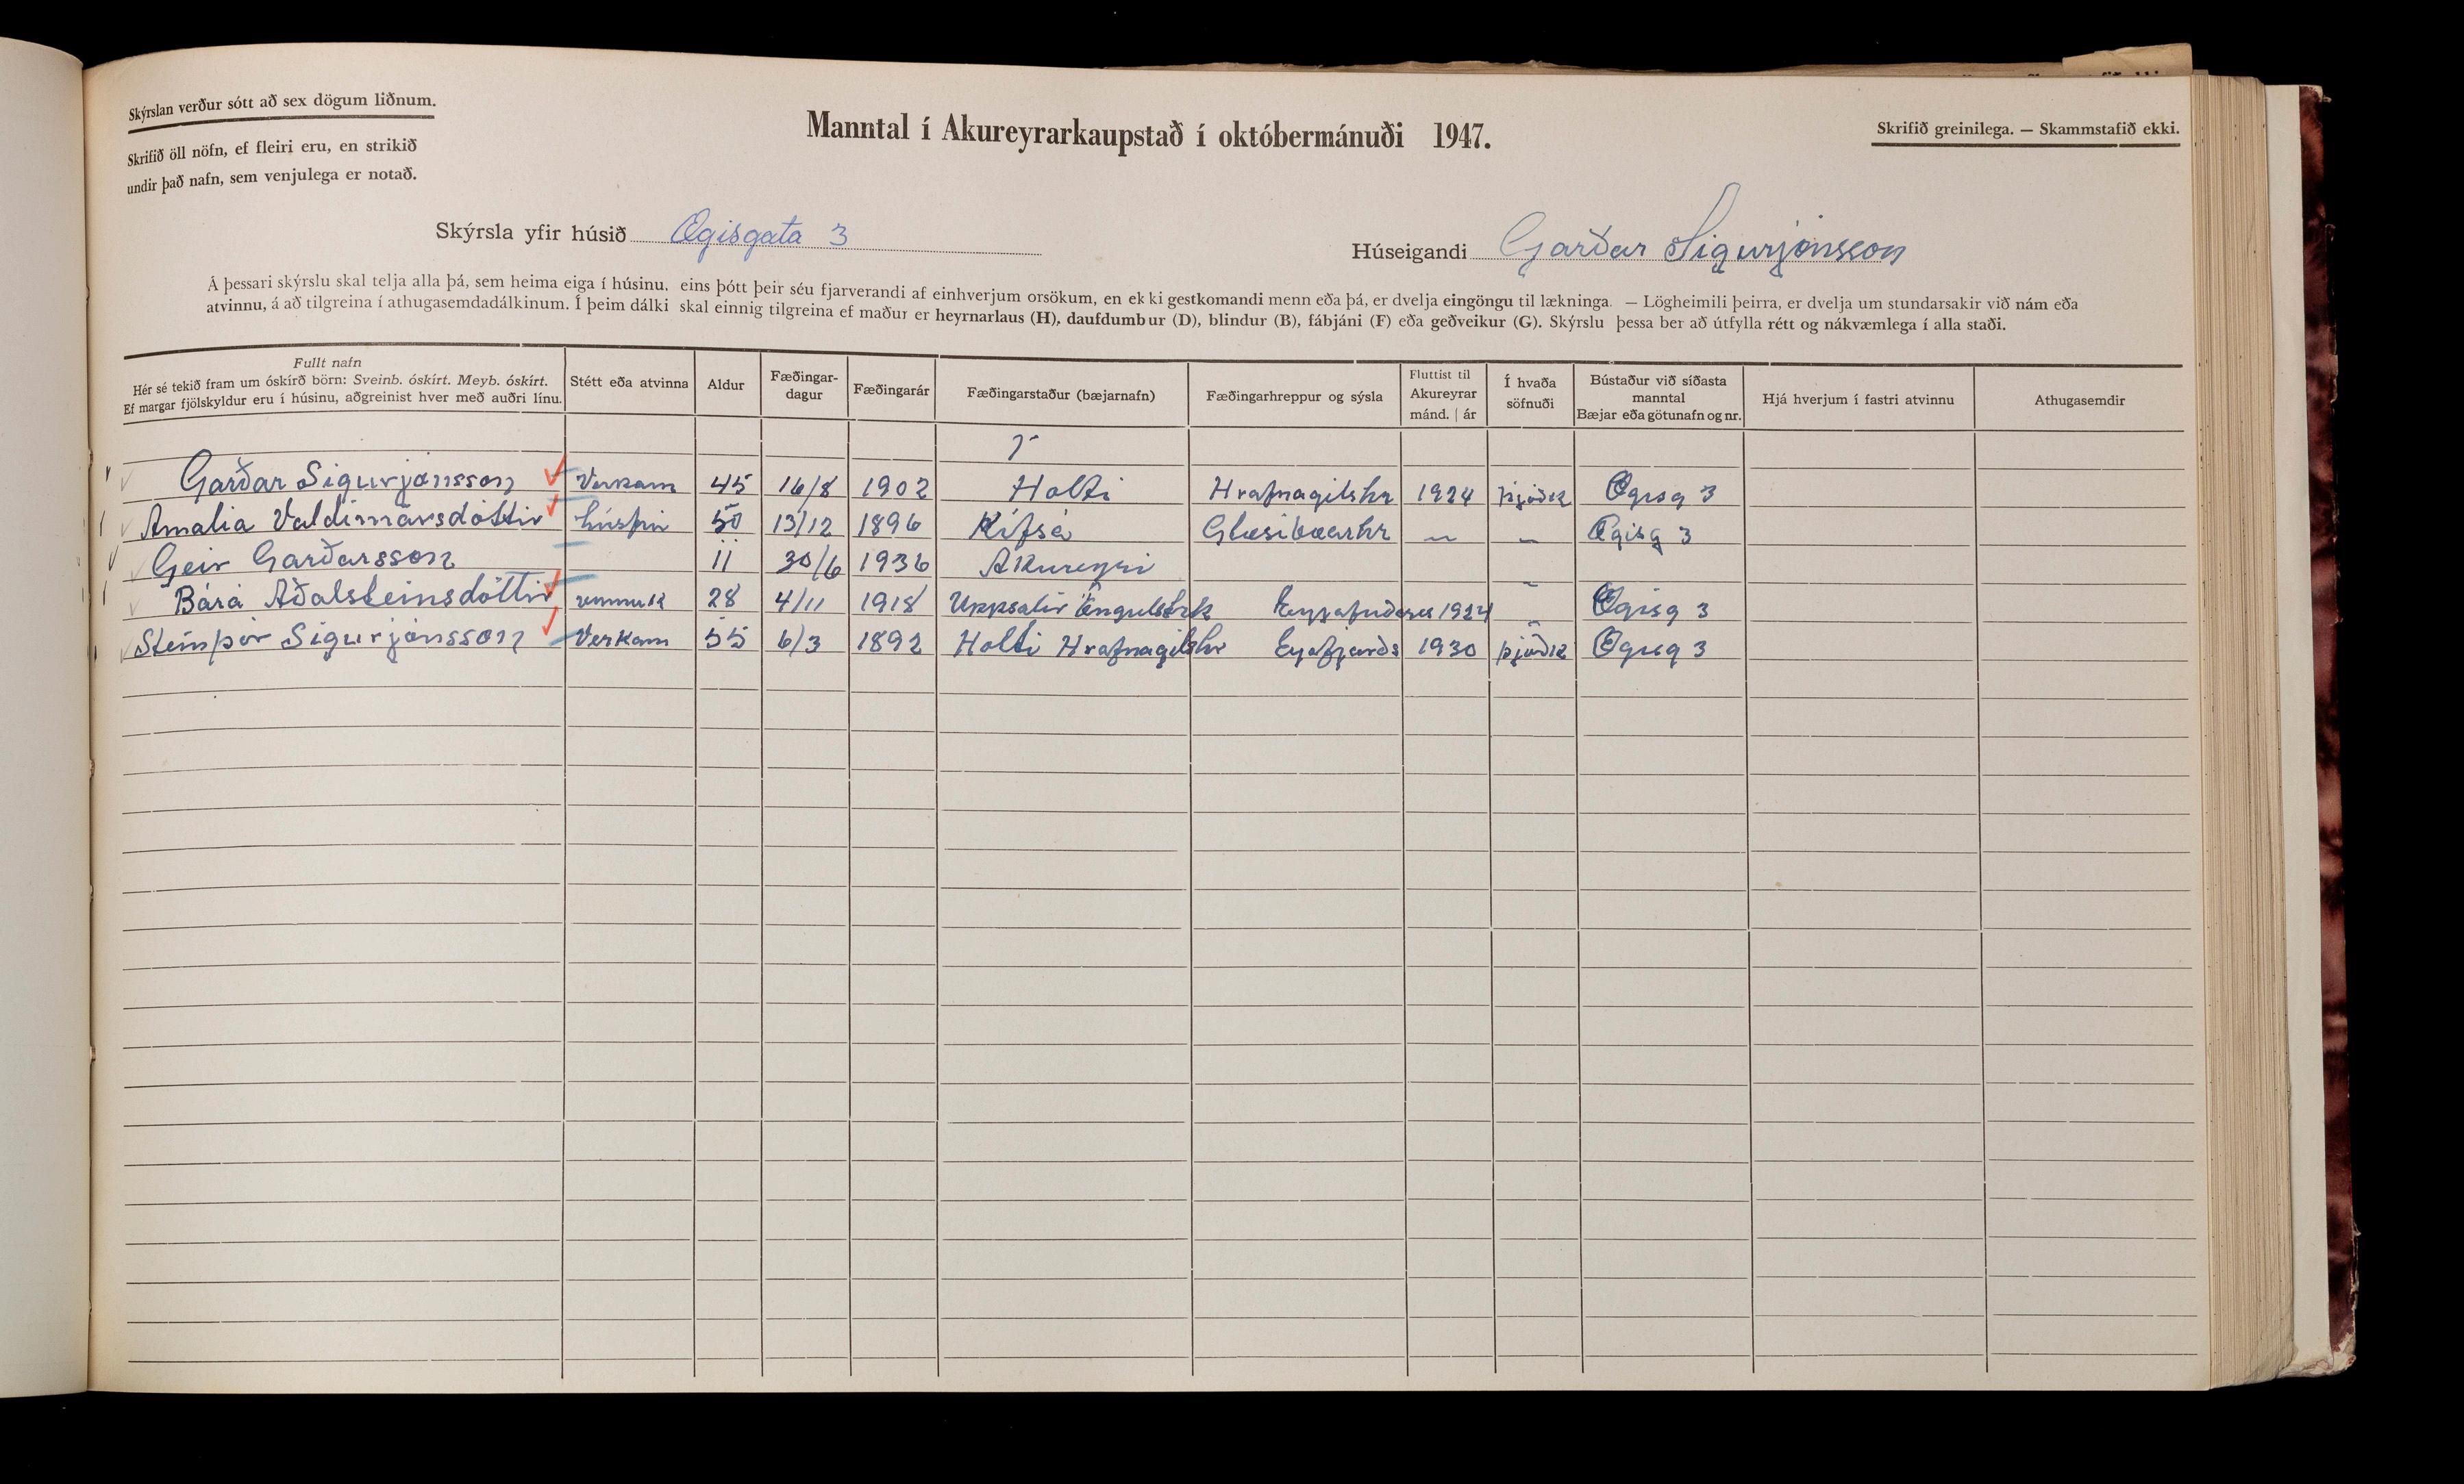 Skýrslan verður sótt að sex dögum liðnum.
Skrifið öll nöfn, ef fleiri eru, en strikið
undir það nafn, sem venjulega er notað.
Manntal í Akureyrarkaupstað í októbermánuði 1947.
Skrifið greinilega. — Skammstafið ekki.
Skýrsla yfir húsið Ægisgata 3
Húseigandi Garðar Sigurjónsson
Á þessari skýrslu skal telja alla þá, sem heima eiga í húsinu, eins þótt þeir séu fjarverandi af einhverjum orsökum, en ekki gestkomandi menn eða þá, er dvelja eingöngu til lækninga. — Lögheimili þeirra, er dvelja um stundarsakir við nám eða
atvinnu, á að tilgreina í athugasemdadálkinum. Í þeim dálki skal einnig tilgreina ef maður er heyrnarlaus (H), daufdumbur (D), blindur (B), fábjáni (F) eða geðveikur (G). Skýrslu þessa ber að útfylla rétt og nákvæmlega í alla staði.
Fullt nafn
Hér sé tekið fram um óskírð börn: Sveinb. óskírt. Meyb. óskírt.
Ef margar fjölskyldur eru í húsinu, aðgreinist hver með auðri línu.
Stétt eða atvinna
Aldur
Fæðingar-
dagur
Fæðingarár
Fæðingarstaður (bæjarnafn)
Fæðingarhreppur og sýsla
Fluttist til
Akureyrar
mánd. | ár
Í hvaða
söfnuði
Bústaður við síðasta
manntal
Bæjar eða götunafn og nr.
Hjá hverjum í fastri atvinnu
Athugasemdir
Garðar Sigurjónsson Verkam 45 16/8 1902 Holti Hrafnagilshr 1924 þjóðk Ægisg 3
Amalia Valdimarsdóttir húsfrú 50 13/12 1896 Kífsá Glæsibæarhr ~ ~ Ægisg 3
Geir Garðarsson 11 30/6 1936 Akureyri
Bára Aðalsteinsdóttir 28 4/11 1918 Uppsalir 1924 Ægisg 3
Steinþór Sigurjónsson Verkam 55 6/3 1892 Holti Hrafnagilshr Eyafjarðs 1930 þjóðk Ægisg 3